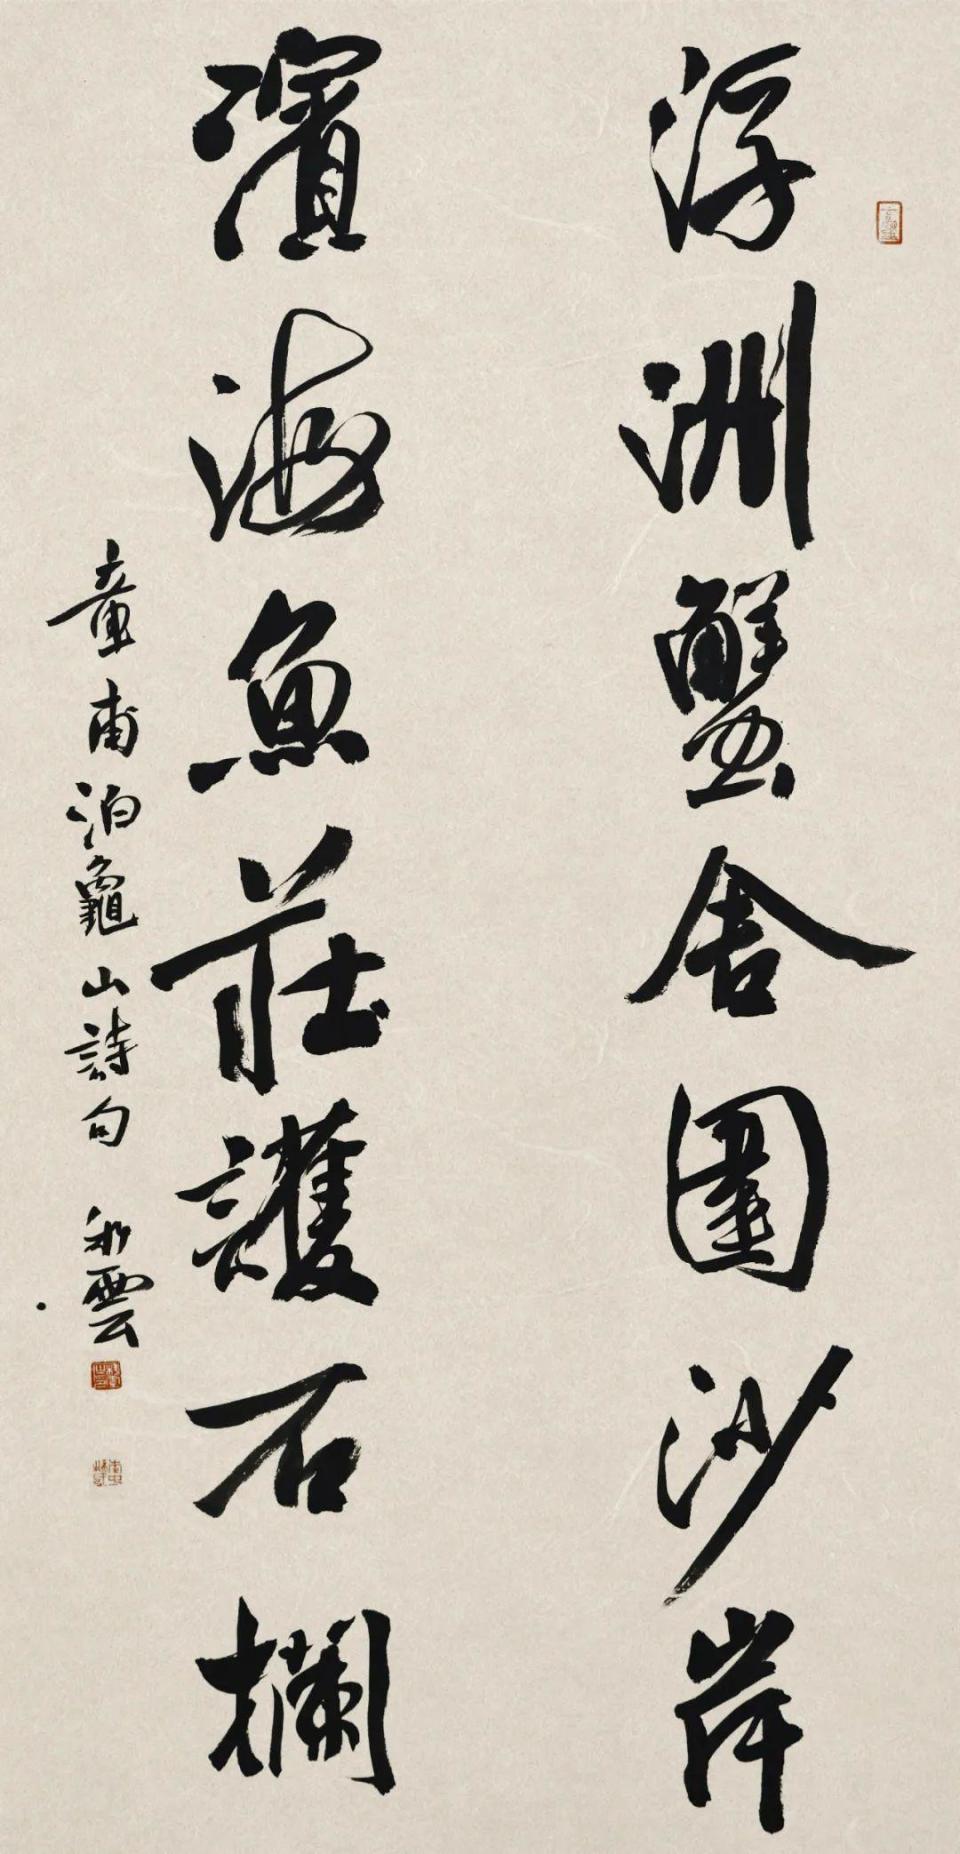 浮洲蟹舍圍沙岸
濱海魚莊護石欄
童甫泊龜山詩句 利雲